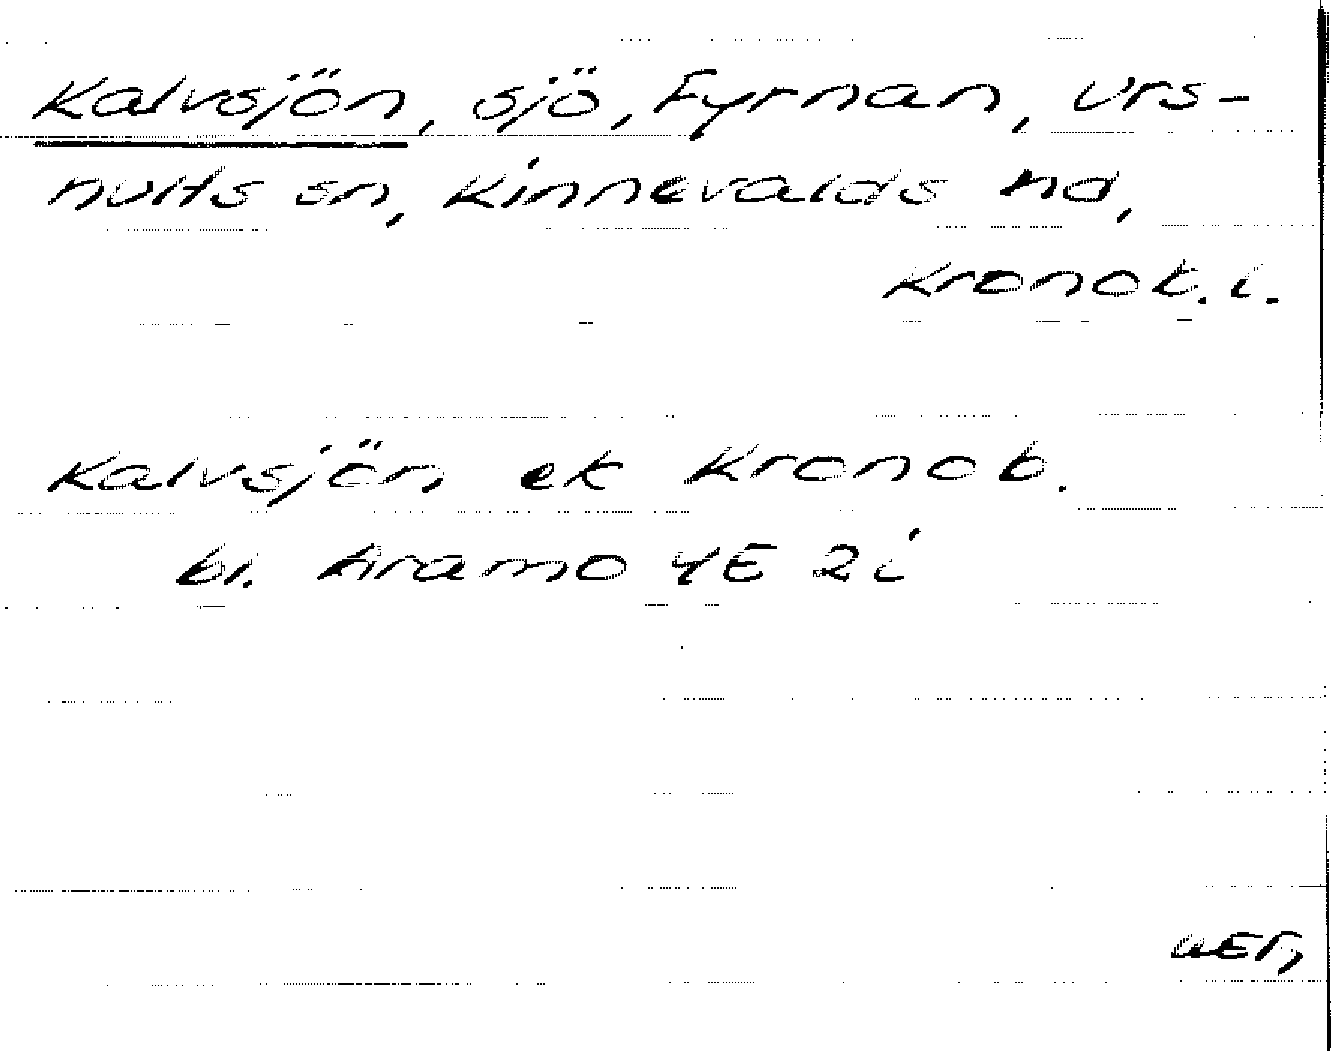 Kalvsjön, sjö, Fyrnan, Urs-
hults sn, Kinnevalds hd,
Kronob. l.
Kalvsjön ek Kronob.
bl. Hramo 4E 2i